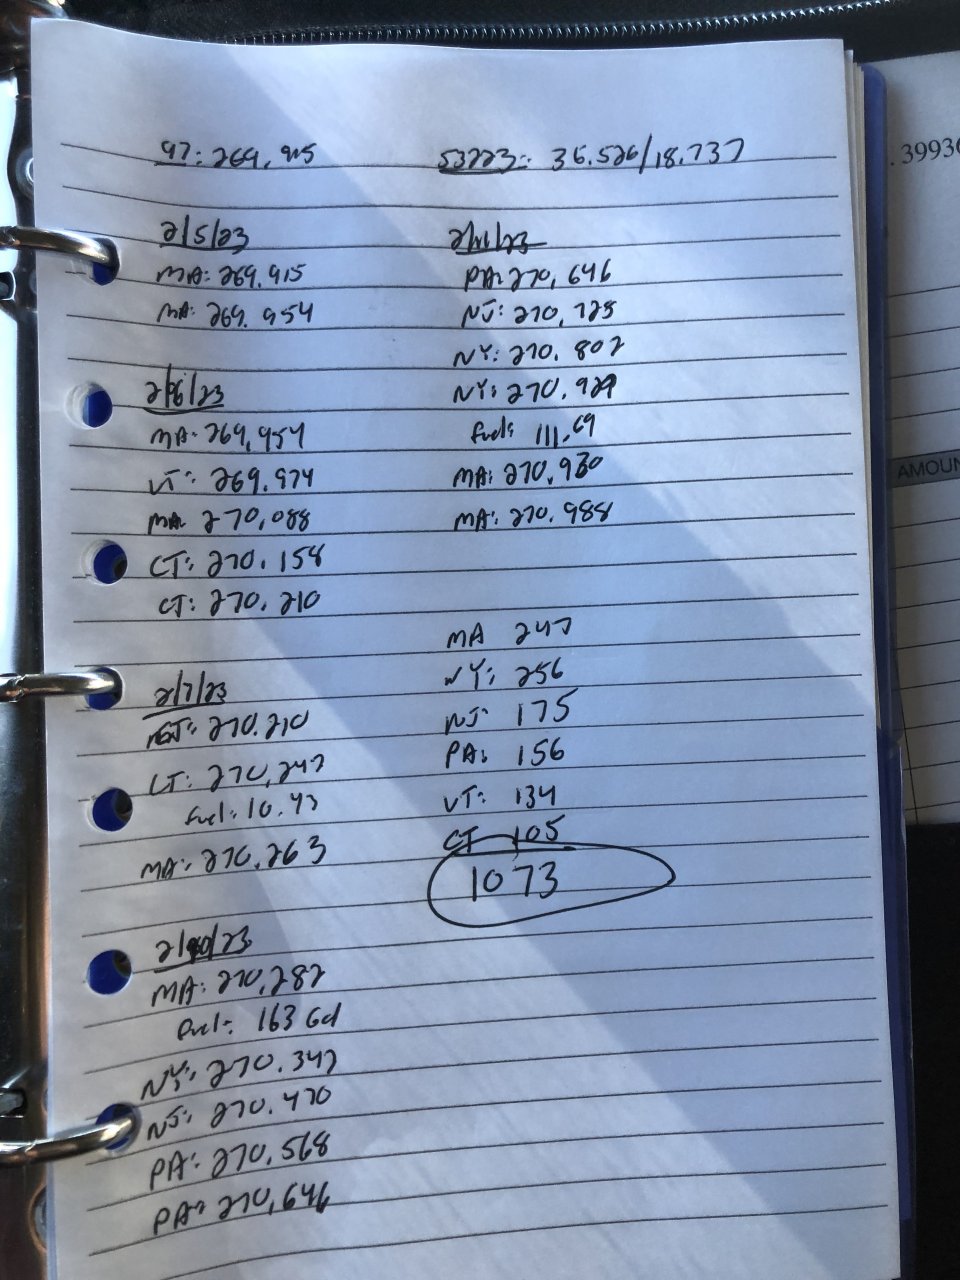 97: 269,915
53223: 36.526/18.737
2/5/23
MA: 269.915
MA: 269.954
2/6/23
MA: 269,954
VT: 269.974
MA 270,088
CT: 270.158
CT: 270.210
2/7/23
270.210
CT: 270,247
fuel: 10.43
MA: 270,263
2/10/23
MA: 270,282
Fuel: 163 Gal
NY: 270.347
NJ: 270.470
PA: 270,568
PA: 270,646
2/11/23
PA: 270,646
NJ: 270,725
NY: 270.802
NY: 270.929
fuel: 111.69
MA: 270,930
MA: 270.988
MA 247
NY: 256
NJ: 175
PA: 156
VT: 134
CT 105
1073
.3993
AMOUN